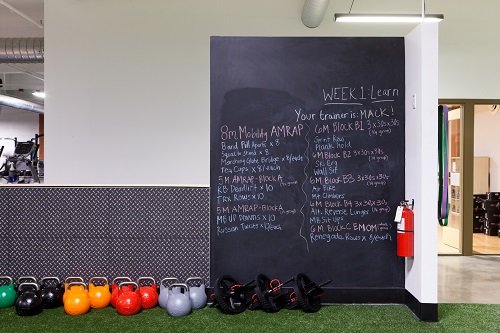 WEEK 1: Learn
Your trainer is: MACK!
8m Mobility AMRAP
Band Pull Aparts x 8
Squat to Stand x 8
Marching Glute Bridge x 8/each
Tey Caps x 8/each
5M AMRAP-BLOCK A
KB Deadlift x 10
TRX Rows x 10
5M AMRAP-BLOCK A
MB UP Downs x 10
Russian Twists x 12/each
6M BLOCK B1 3x30s:30s
Sprint Row
Plank hold
6M BLOCK B2 3x30s:30s
Ski Erg
Wall Sit
6M BLOCK B3 3x30s:30s
Air Bike
Mt Climbers
6M BLOCK B4 3x30s:30s
Alt. Reverse Lunge
MB Sit Ups
6M BLOCK C EMOM
Renegade Rows x 8/each